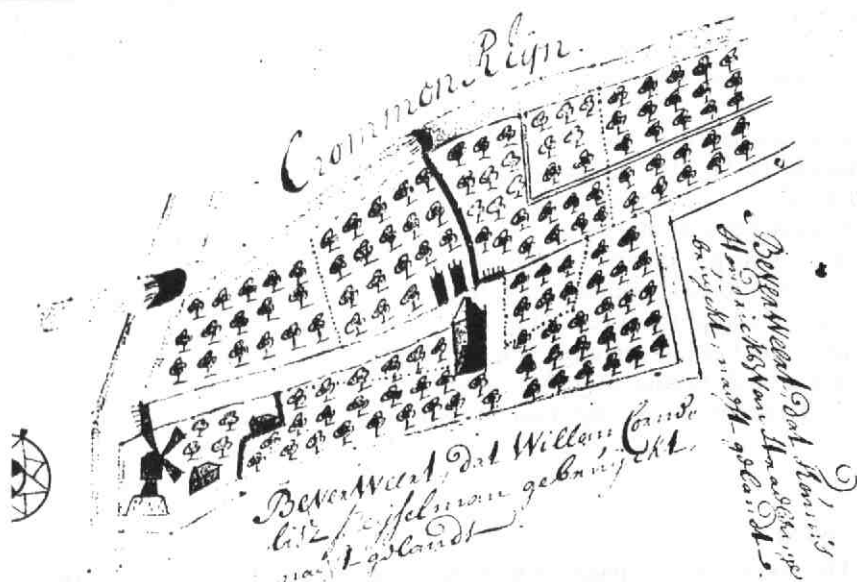 Crommon Rijn.
BeverWeert, dat Willem Corns-
lisz Hijsselman gebruijckt,
naest gelandt
BeverWeert, dat Thonis
Hendricksz Van
bruijckt, naest gelandt.